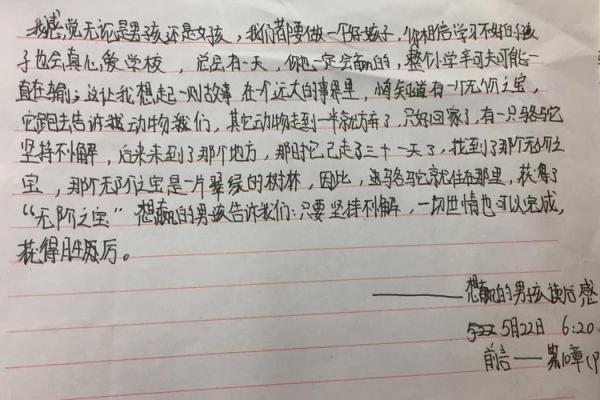 我感觉无论是男孩还是女孩，我们都要做一个好孩子，你相信学习不好的孩
子也会真心爱学校，总会有一天，你也一定会赢的，整个小学车可天可能一
直在输；这让我想起一则故事 在个远大的事界里，悄知道有一个无价之宝，
它跑去告诉我动物我们，其它动物走到一半就放弃了，只好回家了，有一只骆驼
坚持不懈，后来来到了那个地方，那时它已走了三十一天了，找到了那个无价之
宝，那个无价之宝是一片翠绿的树林，因比，这骆驼就住在那里，获得了
“无价之宝”想赢的男孩告诉我们：只要坚持不懈，一切世情也可以完成，
获得胜厉。
——想赢的男孩读后感
5月22日 6:20
前言——第10章(P